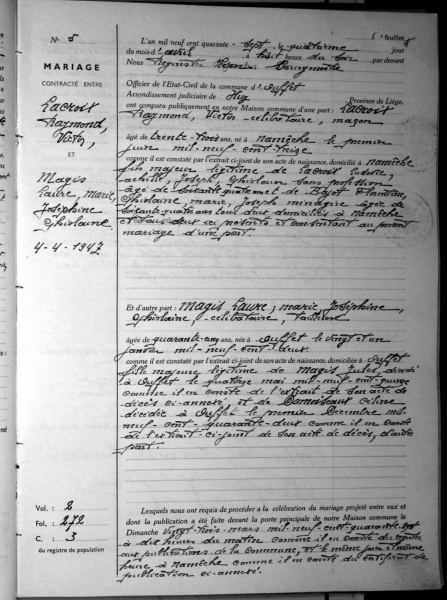 N° 5
MARIAGE
CONTRACTÉ ENTRE
Lacroix
Raymond,
Victor,
ET
Magis
Laure, Marie,
Joséphine
Ghislaine
4-4-1947
5e feuillet
L'an mil neuf cent quarante-sept, le quatrième jour
du mois d'avril à huit heure du soir par devant
Nous
Officier de l'Etat-Civil de la commune d'Ouffet
Arrondissement judiciaire de Huy Province de Liège,
ont comparu publiquement en notre Maison commune d'une part : Lacroix
Raymond, Victor, célibataire, maçon
âgé de trente-trois ans, né à Namêche le premier
juin mil neuf cent treize
comme il est constaté par l'extrait ci-joint de son acte de naissance, domicilié à Namêche
fils majeur légitime de Lacroix
Joseph Ghislain sans profession
âgé de soixante-quatre ans et de
Ghislaine, Marie, Joseph ménagère âgée de
soixante-quatre ans tous deux domiciliés à Namêche
et tous deux ici présents et consentant au présent
mariage d'une part.
Et d'autre part : Magis Laure, Marie, Joséphine,
Ghislaine, célibataire, tailleuse
âgée de quarante-cinq ans, née à Ouffet le vingt et un
janvier mil-neuf-cent-deux
comme il est constaté par l'extrait ci-joint de son acte de naissance, domiciliée à Ouffet
fille majeure légitime de Magis Jules, décédé
à Ouffet le quatorze mai mil-neuf-cent-quinze
comme il en conste de l'extrait de son acte de
décès ci-annexé, et de Céline
décédée à Ouffet le premier Décembre mil-
neuf-cent-quarante-deux comme il en conste
de l'extrait ci-joint de son acte de décès, d'autre
part.
Vol. : 2
Fol. : 272
C. : 3
du registre de population
Lesquels nous ont requis de procéder à la célébration du mariage projeté entre eux et
dont la publication a été faite devant la porte principale de notre Maison commune le
Dimanche vingt-trois-mars mil-neuf-cent-quarante-sept
à dix heures du matin comme il en conste du registre
aux publications de la commune, et le même jour et même
heure à Namêche comme il en conste du certificat de
publication ci-annexé.